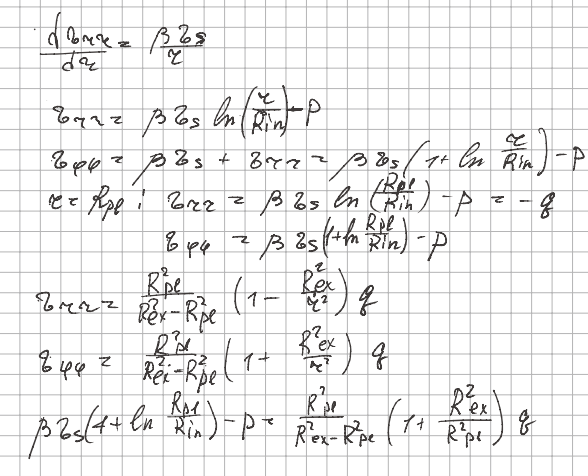 dσ_rr/dr = βσ_s/r
σ_rr = βσ_s ln(r/R_in) - p
σ_φφ = βσ_s + σ_rr = βσ_s(1 + ln r/R_in) - p
r = R_pl : σ_rr = βσ_s ln(R_pl/R_in) - p = -q
σ_φφ = βσ_s(1 + ln R_pl/R_in) - p
σ_rr = R²_pl/(R²_ex - R²_pl) (1 - R²_ex/r²) q
σ_φφ = R²_pl/(R²_ex - R²_pl) (1 + R²_ex/r²) q
βσ_s(1 + ln R_pl/R_in) - p = R²_pl/(R²_ex - R²_pl) (1 + R²_ex/R²_pl) q